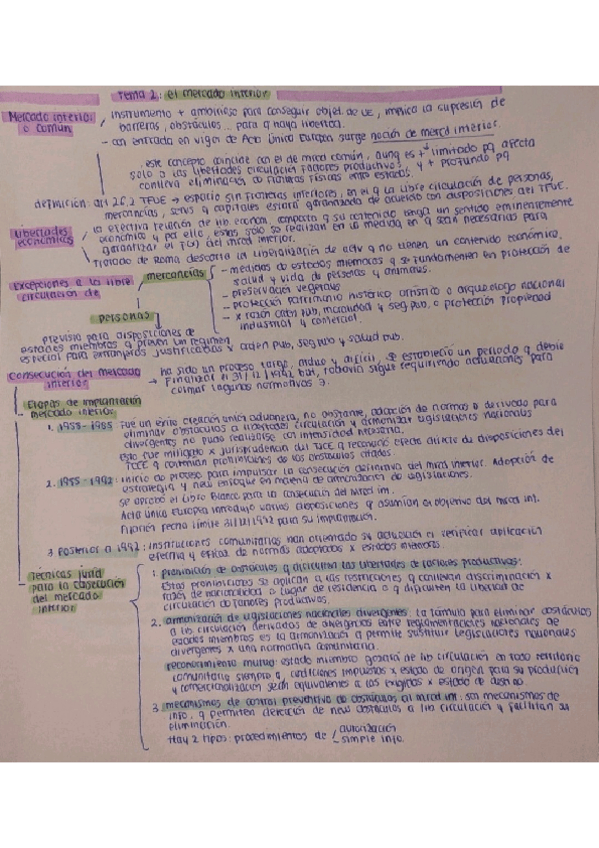 Tema 2: el mercado interior
Mercado interior o común
instrumento + ambicioso para conseguir objet. de UE, implica la supresión de
barreras, obstáculos... para q haya libertad.
- con entrada en vigor de Acta Único Europea surge noción de mercd interior.
este concepto coincide con el de mrcd común, aunq es + limitado pq afecta
solo a las libertades circulación factores productivos, y + profundo pq
conlleva eliminación de fronteras físicas entre estados.
definición: art 26.2 TFUE → espacio sin fronteras interiores, en el q la libre circulación de personas,
mercancías, servs y capitales estará garantizada de acuerdo con disposiciones del TFUE.
Libertades económicas
la efectiva relación de lib econom. comporta q su contenido tenga un sentido eminentemente
económico y por ello, estas solo se realizan en la medida en q sean necesarias para
garantizar el FCO del mrcd interior.
Tratado de Roma descarta la liberalización de actv q no tienen un contenido económico.
Excepciones a la libre circulación de
mercancías
- medidas de estados miembros q se fundamenten en protección de
salud y vida de personas y animales.
- preservación vegetales
- protección patrimonio histórico, artístico o arqueologo nacional
- x razón orden pub, moralidad y seg pub. o protección propiedad
industrial y comercial.
personas
previsto para disposiciones de
estados miembros q preven un regimen
especial para extranjeros justificadas x orden pub, seg pub y salud pub.
Consecución del mercado interior
ha sido un proceso largo, arduo y difícil, se estableció un periodo q debie
finalizar el 31/12/1992 but, todavía sigue requiriendo actuaciones para
colmar lagunas normativas 3.
Etapas de implantación mercado interior
1. 1958-1985 Fue un éxito creación unión aduanera, no obstante, adopción de normas d derivado para
eliminar obstáculos a libertades circulación y armonizar legislaciones nacionales
divergentes no pudo realizarse con intensidad necesaria.
Esto fue mitigado x jurisprudencia del TJCE q reconoció efecto directo de disposiciones del
TCCE q contenían prohibiciones de los obstáculos citados.
2. 1985-1992: inicio de proceso para impulsar la consecución definitiva del mrcd interior. Adopción de
estrategia y new enfoque en materia de armonización de legislaciones.
se aprobó el Libro Blanco para la consecución del mrcd im.
Acta única Europea introdujo varias disposiciones q asumían el objetivo del mrcd int.
Fijación fecha límite 31/12/1992 para su implantación.
3. Posterior a 1992: Instituciones comunitarias han orientado su actuación a verificar aplicación
efectiva y eficaz de normas adoptadas x estados miembros.
Técnicas juríd para la consecución del mercado interior
1. prohibición de obstáculos q dificultan las libertades de factores productivos:
Estas prohibiciones se aplican a las restricciones q conllevan discriminación x
razón de nacionalidad o lugar de residencia o q dificulten la libertad de
circulación de factores productivos.
2. armonización de legislaciones nacionales divergentes. la fórmula para eliminar obstáculos
a lib circulación derivados de divergencias entre reglamentaciones nacionales de
estados miembros es la armonización q permite sustituir legislaciones nacionales
divergentes x una normativa comunitaria.
reconocimiento mutuo: estado miembro gozará de lib circulación en todo territorio
comunitario siempre q condiciones impuestas x estado de origen para su producción
y comercialización sean equivalentes a las exigidas x estado de destino.
3. mecanismos de control preventivo de obstáculos al mrcd int. son mecanismos de
info. q permiten detección de new obstáculos a lib circulación y facilitan su
eliminación.
Hay 2 tipos: procedimientos de
autorización
- simple info.